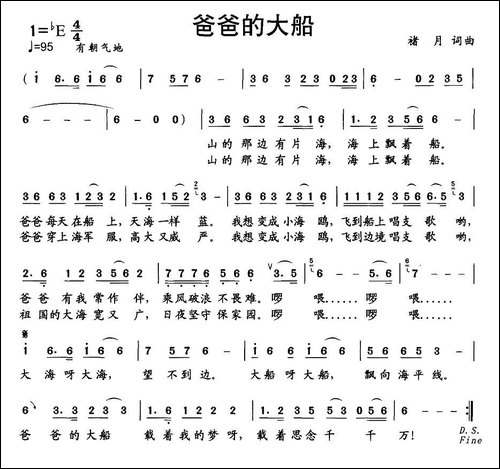 爸爸的大船
1=♭E 4/4
♩=95 有朝气地
褚 月 词曲
(i 6.6 i66 | 7 576 - | 36 323 023 | 6 - 0235 |
6 - - - | 6 - 00) | 36 63 231 6 | 1.2 356 6 |
山的 那边 有片 海， 海上 飘着 船。
山的 那边 有片 海， 海上 飘着 船。
36 63 1232 | 1.6 152 3 - | 36 63 2316 | 1112 3566 3 |
爸爸 每天 在船 上，天海 一样 蓝。 我想 变成 小海 鸥，飞到 船上 唱支 歌 哟，
爸爸 穿上 海军 服，高大 又威 严。 我想 变成 小海 鸥，飞到 边境 唱支 歌 哟，
2.6 12 356 2 | 7776 567 6 | 3.5 | 6 - - 5.6 | 7 - - - |
爸爸 有我 常作 伴，乘风 破浪 不畏 难。啰 喂……啰 喂……
祖国的 大海 宽又 广，日夜 坚守 保家 园。啰 喂……啰 喂……
i 6.6 i6 i | 7 57 6 - | i 6.6 i6 i | 5 653 - |
大 海呀 大海， 望 不到 边。 大船 呀 大船， 飘向 海平 线。
6 3.3 2.3 6 | 3.2 12 2 | 3.3 23 1 2 | 6 - - - |
爸 爸的 大船 载着 我的 梦呀，载着 思念 千 千 万！
D.S.
Fine